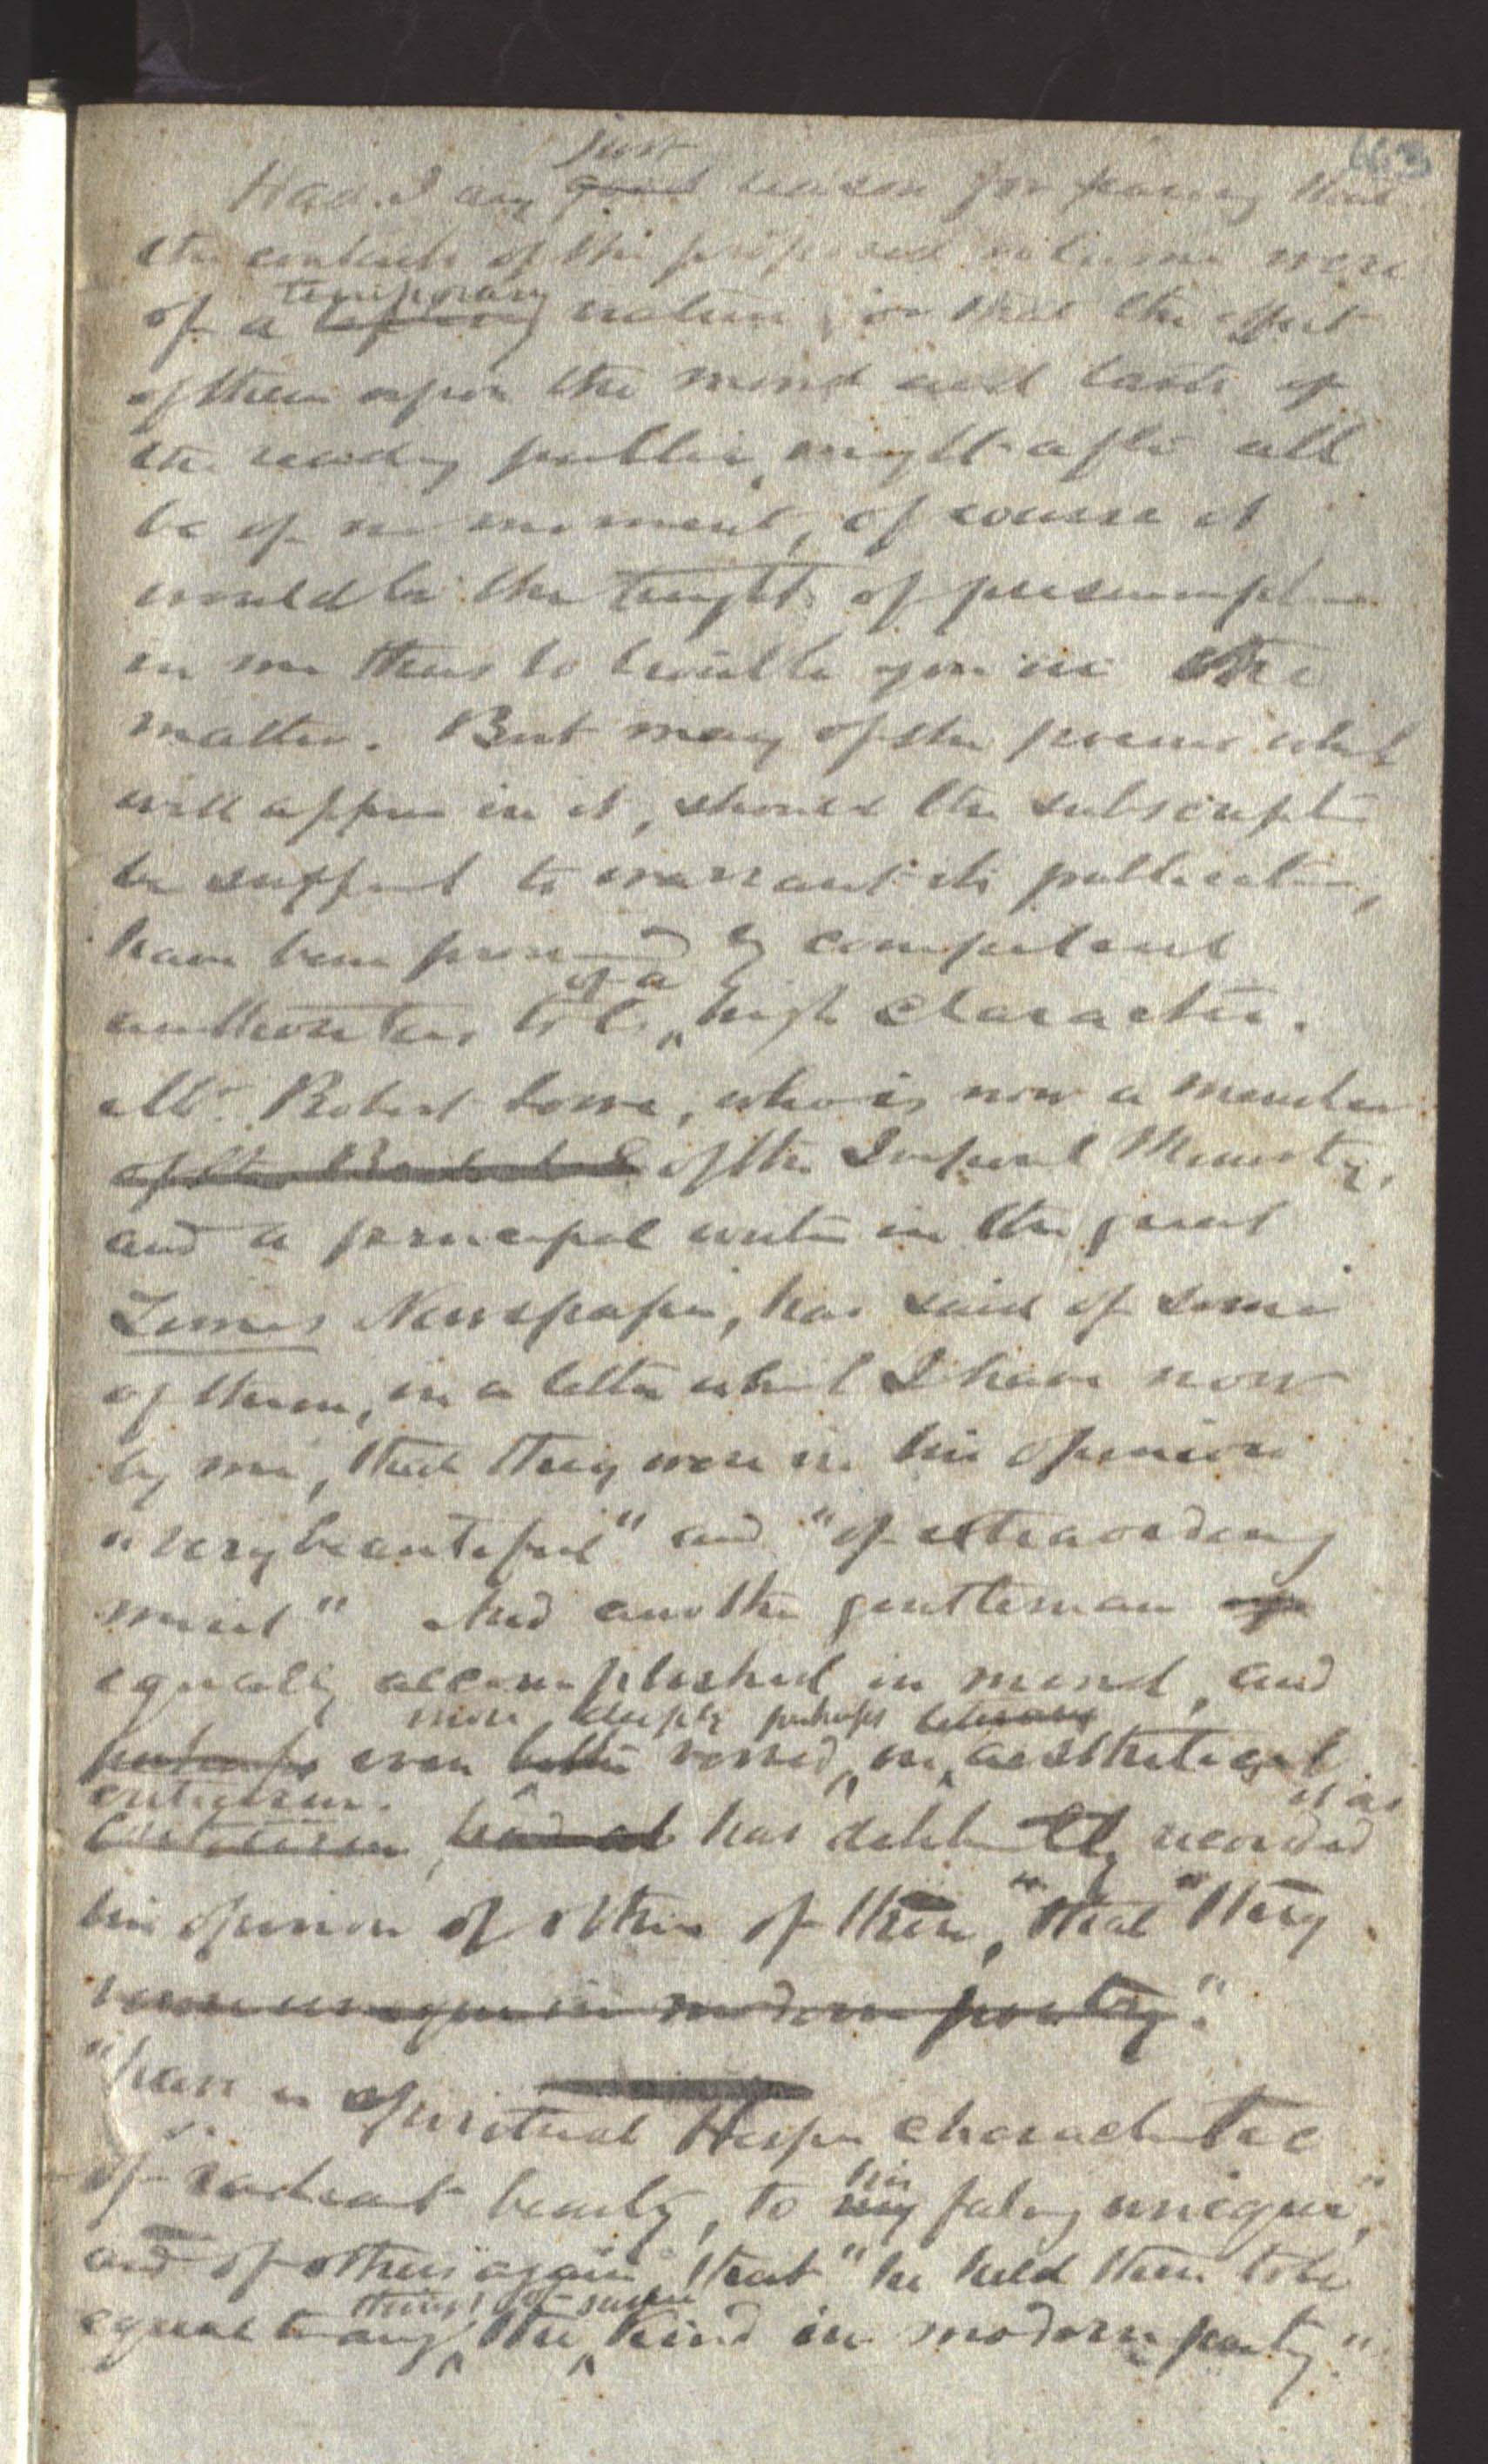 663
just
Had I any good reason for fearing that
the contents of the proposed volume were
temporary
of a nature, or that the effect
of them upon the mind and taste of
the reading public, might after all
be of no moment, of course it
would be the height of presumption
in me thus to trouble you in the
matter. But many of the poems which
will appear in it, should the subscription
be sufficient to warrant its publication,
have been pronounced by competent
of a
authorities to be high character.
Mr. Robert Lowe, who is now a member
of the of the Imperial Ministry,
and a principal writer in the great
Times Newspaper, has said of some
of them, in a letter which I have now
by me, that they were in his opinion
"very beautiful" and "of extraordinary
merit" And another gentleman of
equally accomplished in mind, and
more deeply perhaps
perhaps even better versed, in aesthetical
criticism. it as
criticism, has deliberately recorded
his opinion of others of them, "that "they
were unique in modern poetry."
"have a spiritual character
of radiant beauty, to my feeling unique",
his
and of others again that "he held them to be
things of same
equal to any the kind in modern poetry"